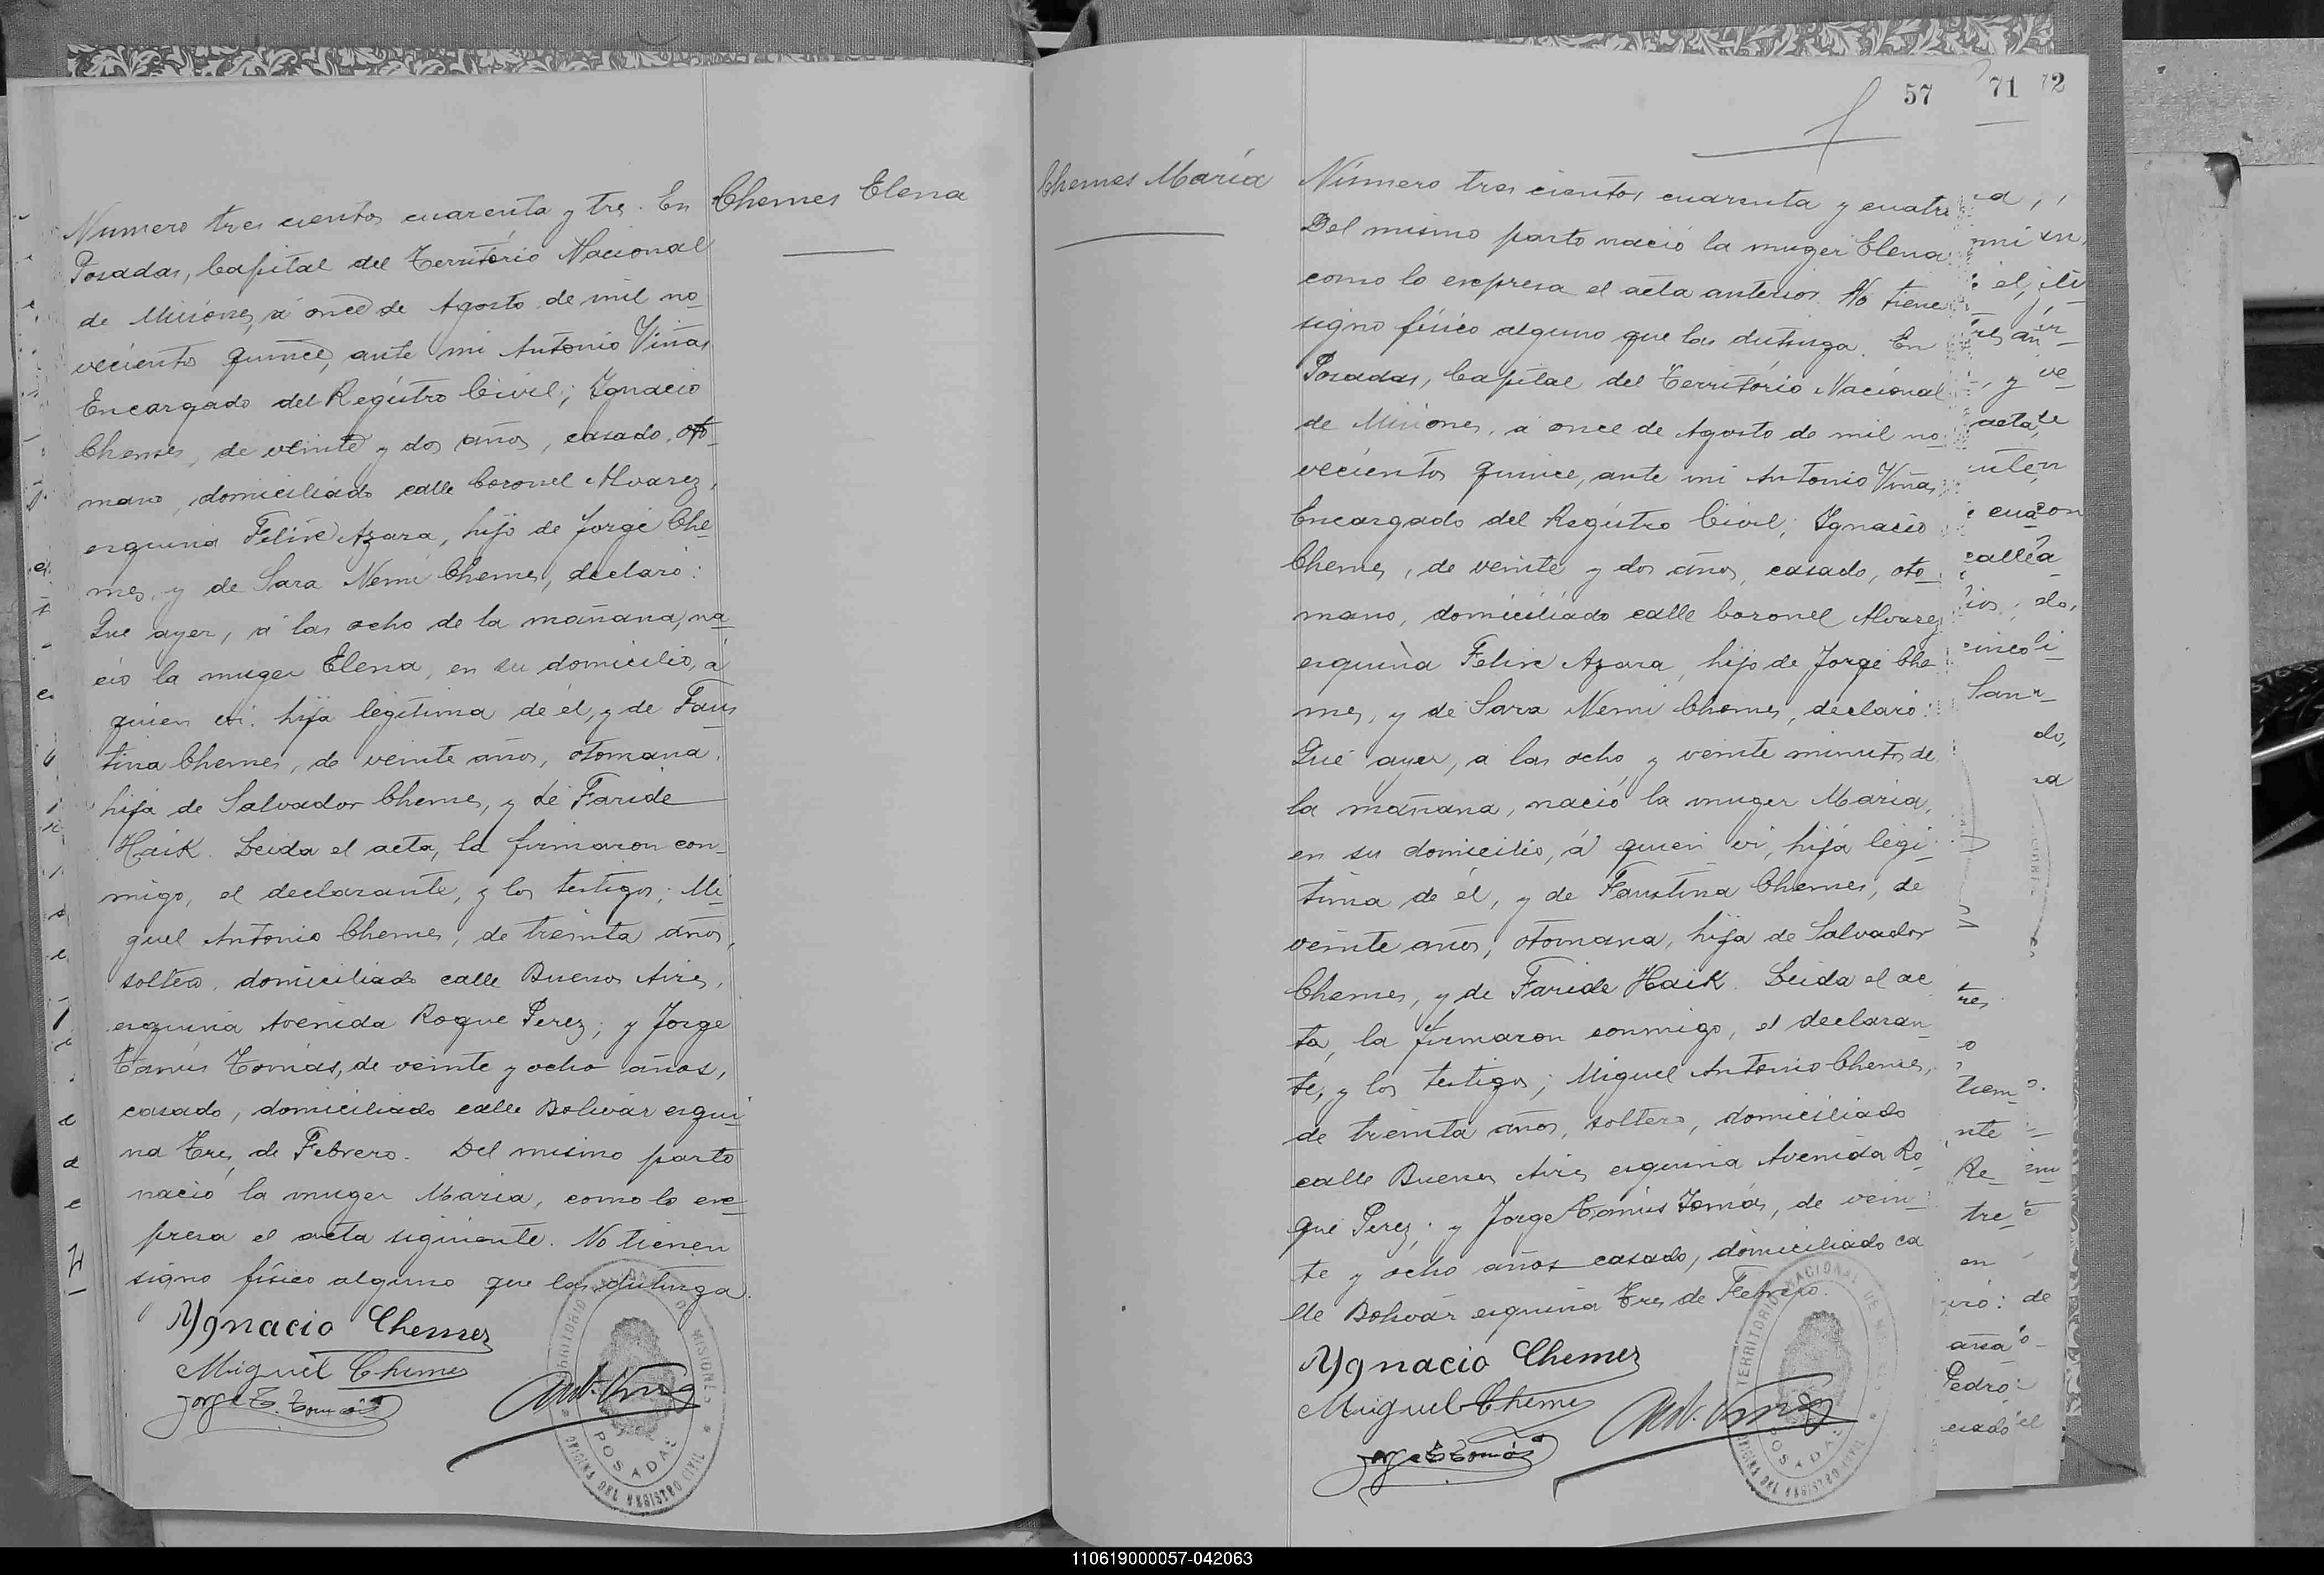 Chemes Elena
Numero tres cientos cuarenta y tres. En
Posadas, Capital del Territorio Nacional
de Misiones, á once de Agosto de mil no-
vecientos quince, ante mi Antonio Viñas
Encargado del Registro Civil; Ignacio
Chemes, de veinte y dos años, casado, oto-
mano, domiciliado calle Coronel Alvarez,
esquina Felix Azara, hijo de Jorge Che-
mes, y de Sara Nemi Chemes, declaró:
Que ayer, á las ocho de la mañana, na-
ció la muger Elena, en su domicilio, á
quien vi: hija legitima de él, y de Faus
tina Chemes, de veinte años, otomana,
hija de Salvador Chemes, y de Faride
Haik. Leida el acta, la firmaron con-
migo, el declarante, y los testigos; Mi-
guel Antonio Chemes, de treinta años,
soltero, domiciliado calle Buenos Aires,
esquina Avenida Roque Perez; y Jorge
Tanús Tomás, de veinte y ocho años,
casado, domiciliado calle Bolivar esqui-
na Tres de Febrero. Del mismo parto
nació la muger Maria, como lo ex-
presa el acta siguiente. No tienen
signo físico alguno que las distinga.
Ygnacio Chemes
Miguel Chemes
Jorge T. Tomás
Ant. Viñas
TERRITORIO NACIONAL DE MISIONES
POSADAS
OFICINA DEL REGISTRO CIVIL
57
71
72
Chemes María
Número tres cientos cuarenta y cuatro
Del mismo parto nació la muger Elena
como lo expresa el acta anterior. No tiene
signo físico alguno que las distinga. En
Posadas, Capital del Territorio Nacional
de Misiones, á once de Agosto de mil no-
vecientos quince, ante mi Antonio Viñas,
Encargado del Registro Civil; Ignacio
Chemes, de veinte y dos años, casado, oto-
mano, domiciliado calle Coronel Alvarez
esquina Felix Azara, hijo de Jorge Che-
mes, y de Sara Nemi Chemes, declaró:
Que ayer, a las ocho y veinte minutos de
la mañana, nació la muger Maria,
en su domicilio, á quien vi, hija legi-
tima de él, y de Faustina Chemes, de
veinte años, otomana, hija de Salvador
Chemes, y de Faride Haik. Leida el ac
ta, la firmaron conmigo, el declaran-
te, y los testigos; Miguel Antonio Chemes,
de treinta años, soltero, domiciliado
calle Buenos Aires esquina Avenida Ro-
que Perez; y Jorge Tanús Tomás, de vein-
te y ocho años casado, domiciliado ca
lle Bolivar esquina Tres de Febrero.
Ygnacio Chemes
Miguel Chemes
Jorge T Tomás
Ant. Viñas
TERRITORIO NACIONAL DE MISIONES
POSADAS
OFICINA DEL REGISTRO CIVIL
110619000057-042063